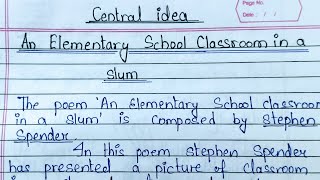 Page No.
Date : / /
Central idea
An Elementary School Classroom in a
slum
The poem 'An Elementary School classroom
in a slum' is composed by Stephen
Spender.
In this poem stephen Spender
has presented a picture of classroom